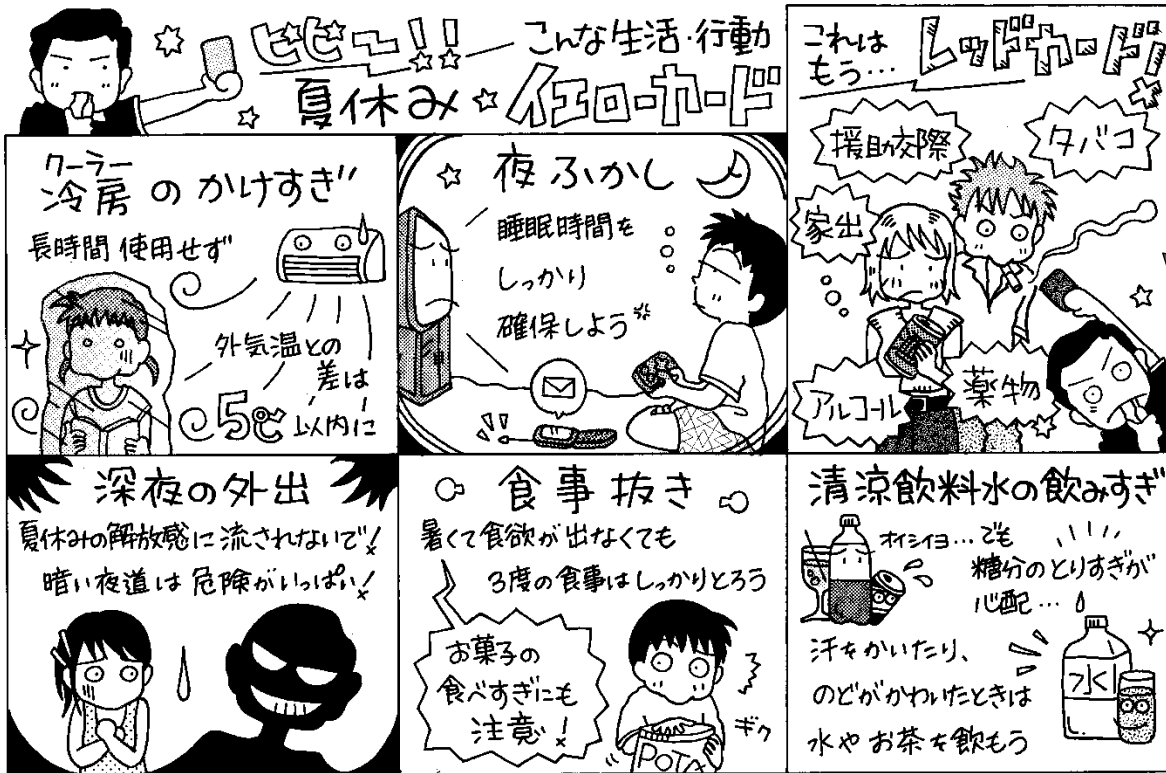 ピピ〜!!
こんな生活・行動
夏休み☆イエローカード
これは
もう…
レッドカード!
援助交際
タバコ
家出
アルコール
薬物
クーラー
冷房のかけすぎ
長時間使用せず
外気温との
差は
5℃以内に
夜ふかし
睡眠時間を
しっかり
確保しよう
深夜の外出
夏休みの解放感に流されないで!
暗い夜道は危険がいっぱい!
食事抜き
暑くて食欲が出なくても
3度の食事はしっかりとろう
お菓子の
食べすぎにも
注意!
ギク
POTA
清涼飲料水の飲みすぎ
オイシイヨ…でも
糖分のとりすぎが
心配…
汗をかいたり、
のどがかわいたときは
水やお茶を飲もう
水